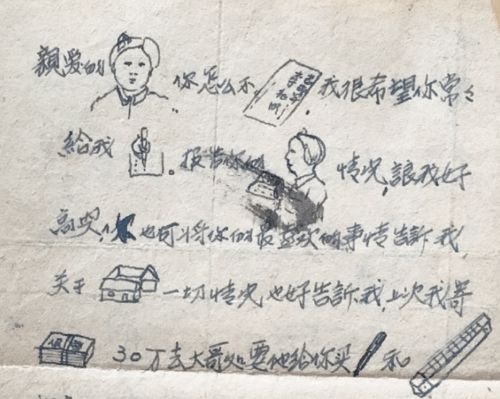 親爱的 你怎么不 我很希望你常々
給我 。报告你的 情况,讓我好
高兴,你也可将你的最喜欢的事情告訴我,
关于 一切情况也好告訴我,上次我寄
30万去大哥处要他给你买 和